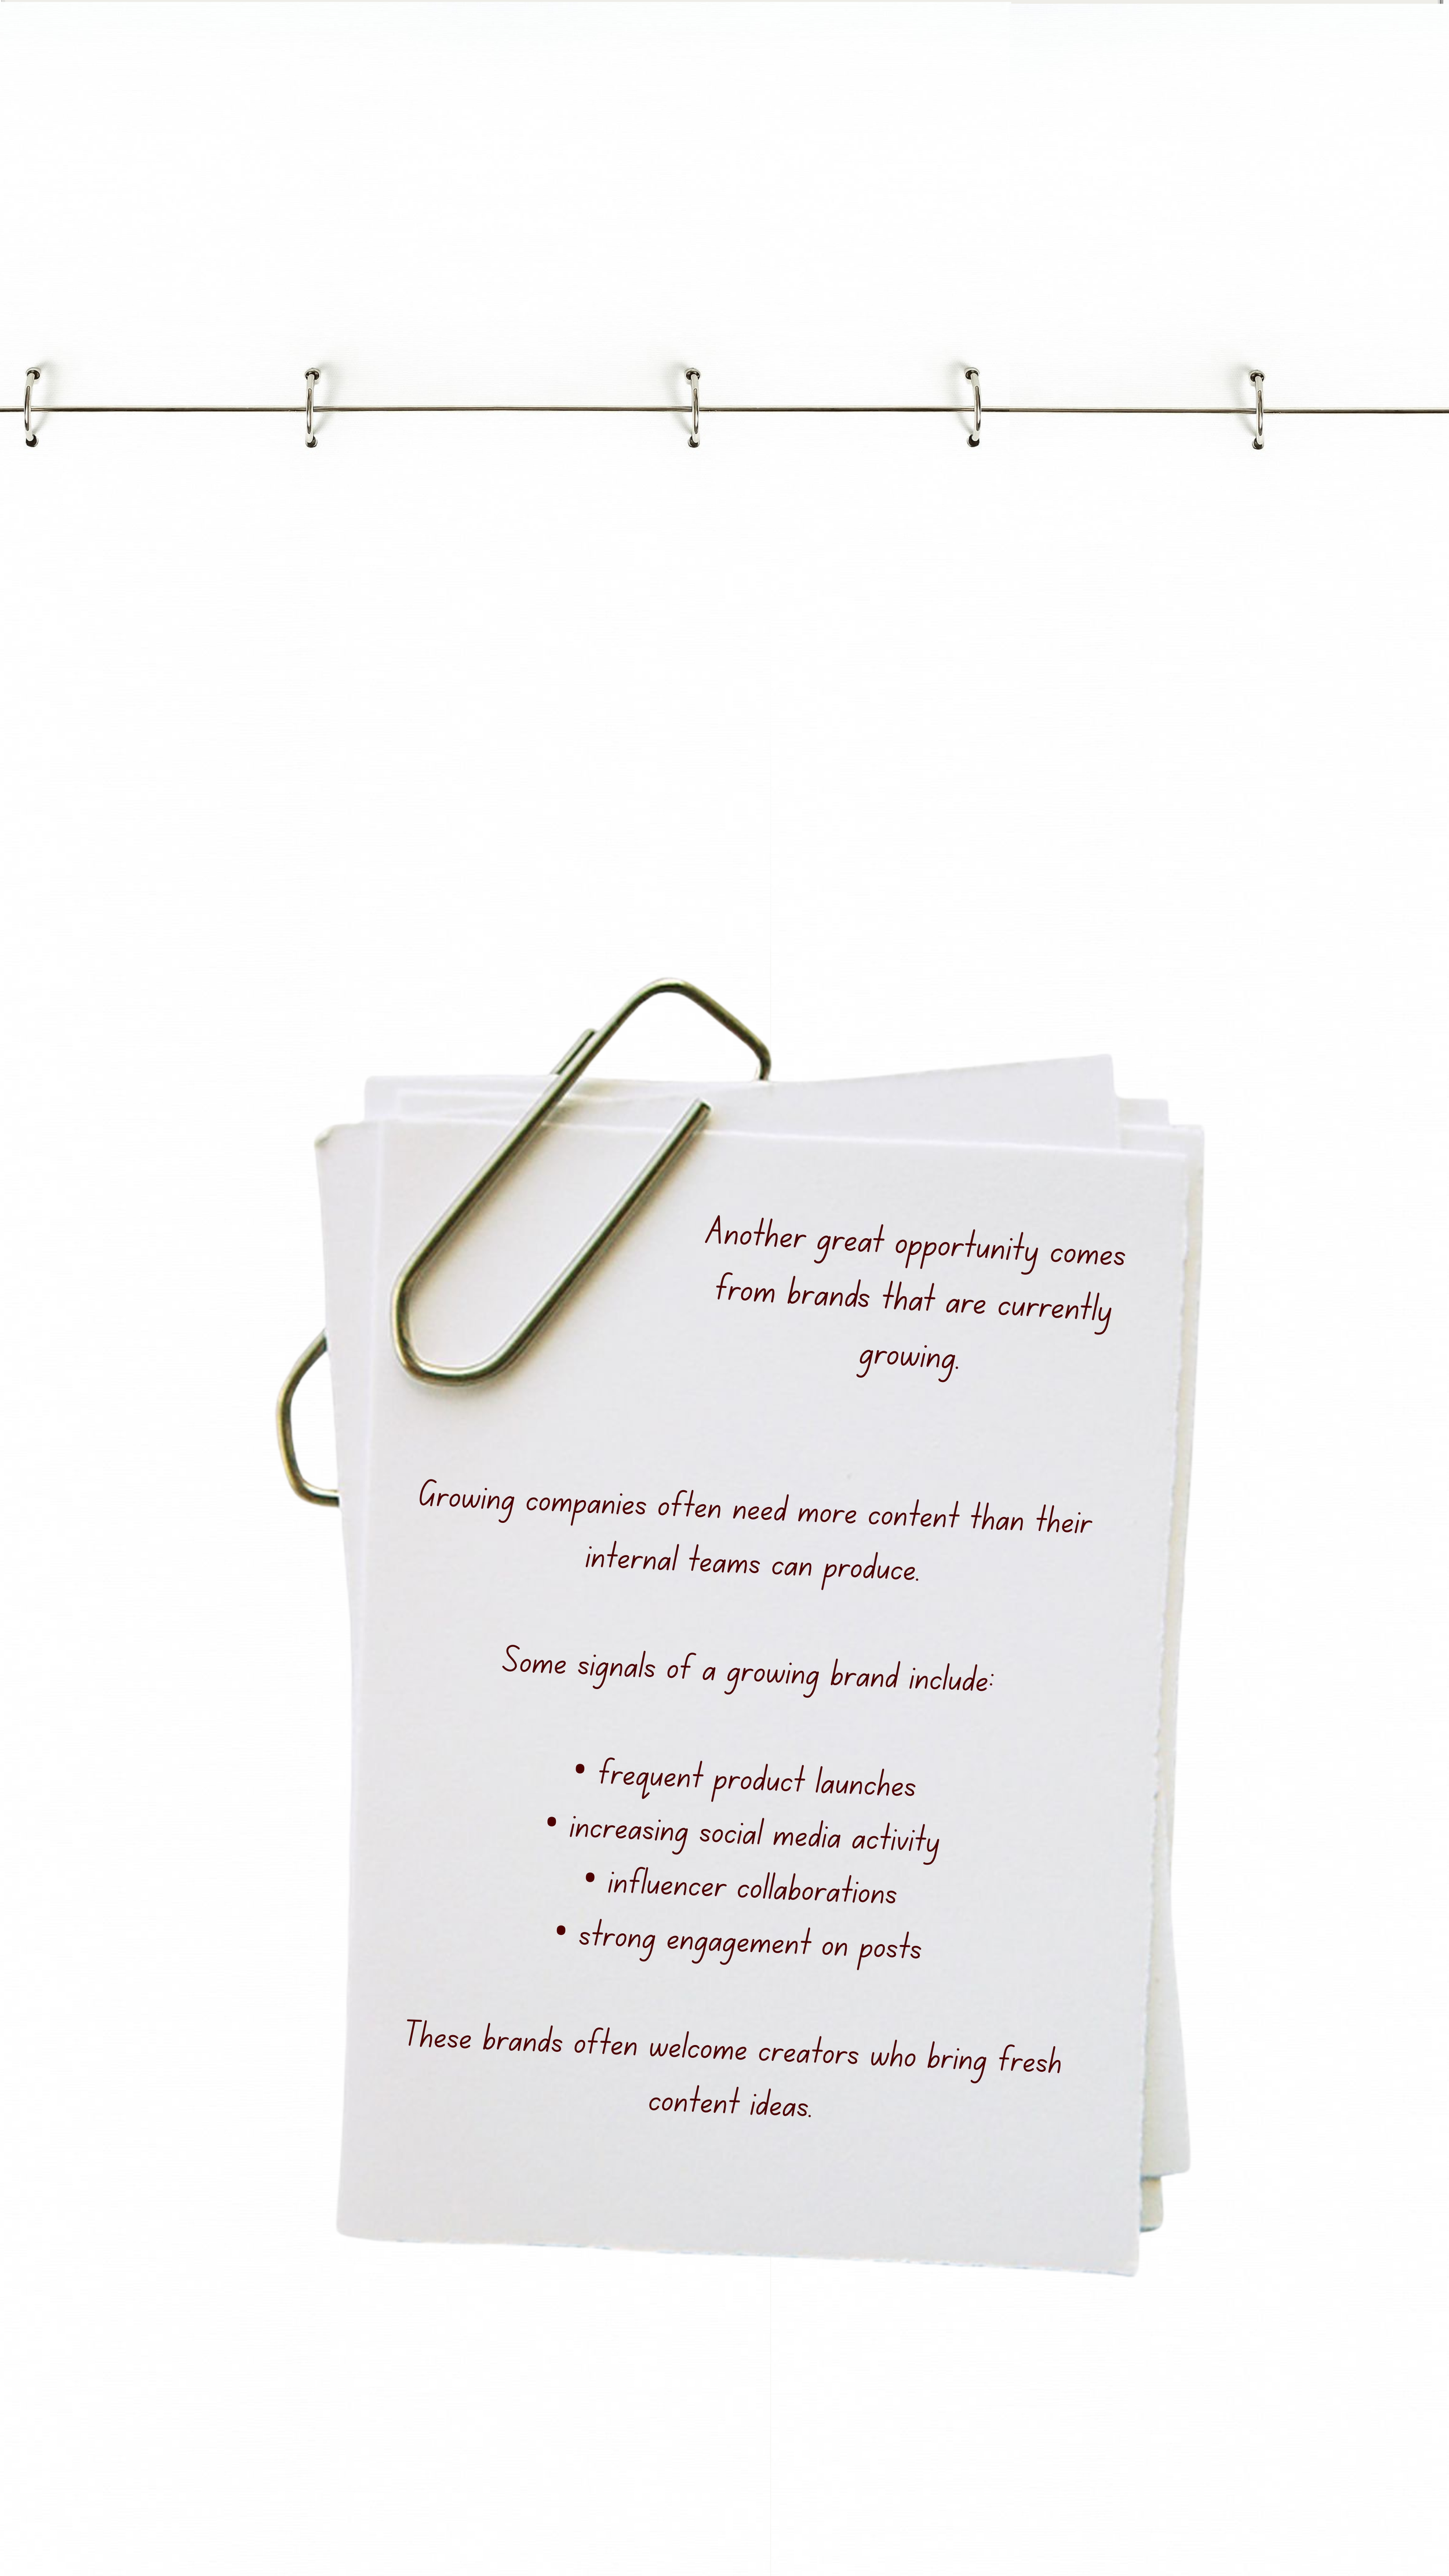 Another great opportunity comes
from brands that are currently
growing.
Growing companies often need more content than their
internal teams can produce.
Some signals of a growing brand include:
• frequent product launches
• increasing social media activity
• influencer collaborations
• strong engagement on posts
These brands often welcome creators who bring fresh
content ideas.